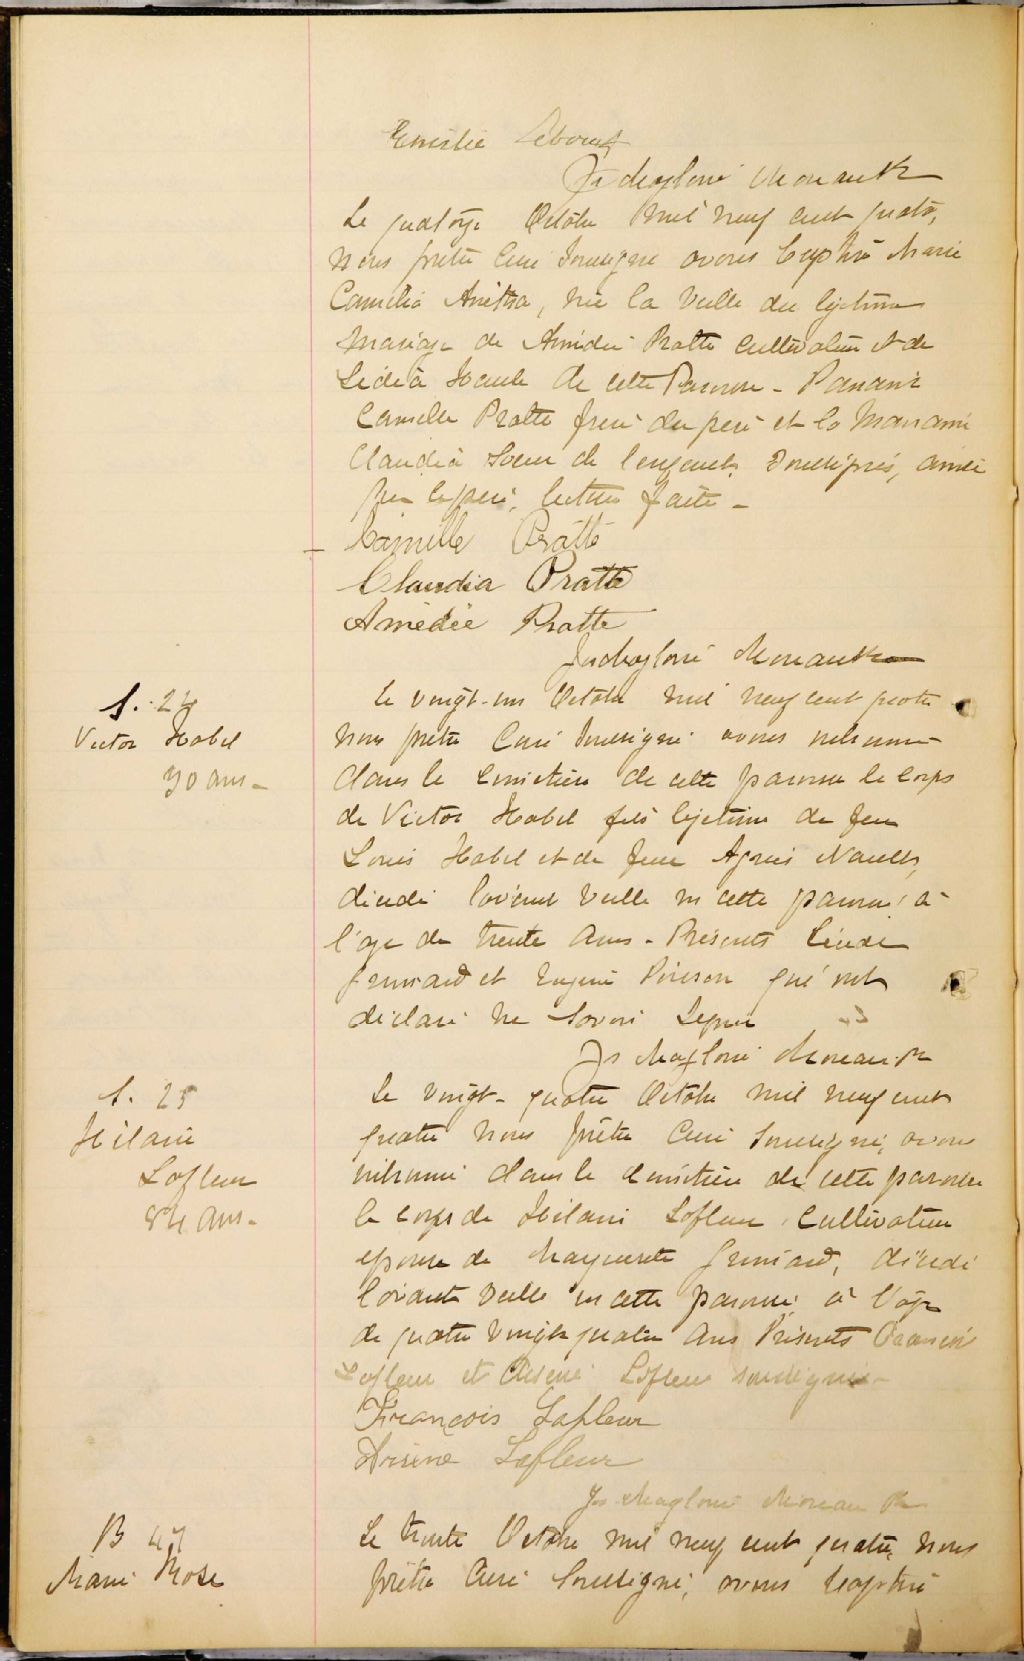 Emilie Leboeuf
Js Magloire Moreau Ptr
Le quatorze Octobre mil neuf cent quatre,
nous prêtre Curé soussigné avons baptisé Marie
Camélia Anetha, née la veille du légitime
mariage de Amédée Pratte cultivateur et de
Lédéà Haule de cette Paroisse - Parrain
Camille Pratte frère du père et la Marraine
Claudia soeur de l'enfant soussignés, ainsi
que le père, lecture faite -
Camille Pratte
Claudia Pratte
Amédée Pratte
Js Magloire Moreau Ptr
S. 24
Victor Habel
30 ans -
Le vingt-un Octobre mil neuf cent quatre
nous prêtre Curé soussigné avons inhumé
dans le cimetière de cette paroisse le corps
de Victor Habel fils légitime de feu
Louis Habel et de feue Agnès Nault,
décédé l'avant veille en cette paroisse à
l'age de trente ans - Présents
et Eugène Poisson qui ont
déclaré ne savoir signer
Js Magloire Moreau Ptr
S. 25
Hilaire
Lafleur
84 ans -
Le vingt-quatre Octobre mil neuf cent
quatre nous prêtre Curé soussigné, avons
inhumé dans le cimetière de cette paroisse
le corps de Hilaire Lafleur, cultivateur
époux de Marguerite décédé
l'avant veille en cette paroisse, à l'âge
de quatre vingt quatre ans Présents François
Lafleur et Arsène Lafleur soussignés -
François Lafleur
Arsène Lafleur
Js Magloire Moreau Ptr
B 47
Marie Rose
Le trente Octobre mil neuf cent quatre, nous
prêtre Curé soussigné, avons baptisé